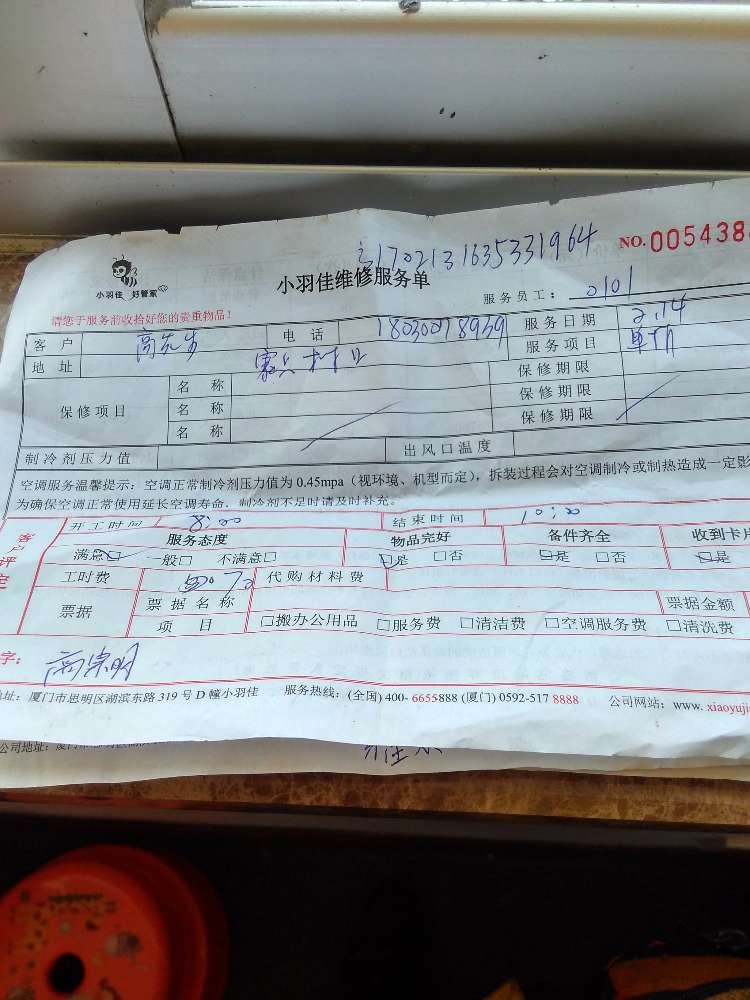 1702131635331964
NO.005438
小羽佳 好管家
小羽佳维修服务单
服务员工: 0101
请您于服务前收拾好您的贵重物品!
客 户 高先生 电 话 服务日期 2.14
地 址 服务项目
保修项目 名 称 保修期限
名 称 保修期限
名 称 保修期限
制冷剂压力值 出风口温度
空调服务温馨提示:空调正常制冷剂压力值为 0.45mpa(视环境、机型而定),拆装过程会对空调制冷或制热造成一定影
为确保空调正常使用延长空调寿命,制冷剂不足时请及时补充。
开工时间 8:00 结束时间 10:00
客户评定
服务态度 物品完好 备件齐全 收到卡片
满意□ 一般□ 不满意□ □是 □否 □是 □否 □是
工时费 代购材料费
票据 票据名称 票据金额
项 目 □搬办公用品 □服务费 □清洁费 □空调服务费 □清洗费
字: 高宗明
地址:厦门市思明区湖滨东路 319 号 D 幢小羽佳 服务热线:(全国) 400- 6655888 (厦门) 0592-517 8888 公司网站:www. xiaoyuji
公司地址: